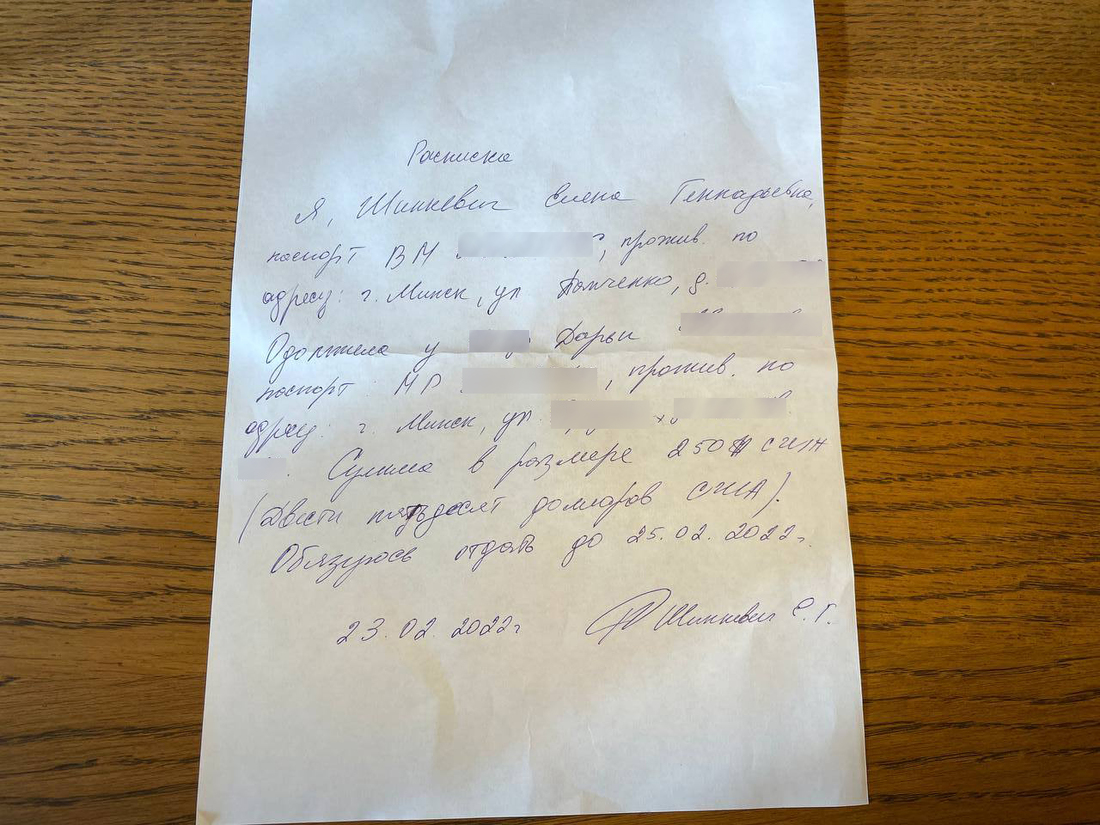 Расписка
Я, Шинкевич Елена Геннадьевна,
паспорт ВМ , прожив. по
адресу: г. Минск, ул Панченко, д.
Одолжела у Дарьи
паспорт МР , прожив. по
адресу: г. Минск, ул.
Сумма в размере 250 США
(Двести пятьдесят долларов США).
Обязуюсь отдать до 25.02.2022г.
23.02.2022г Шинкевич Е.Г.